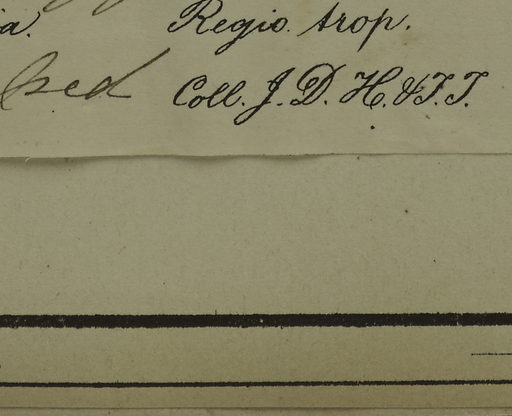 ia. Regio trop.
Coll. J. D. H. & T. T.